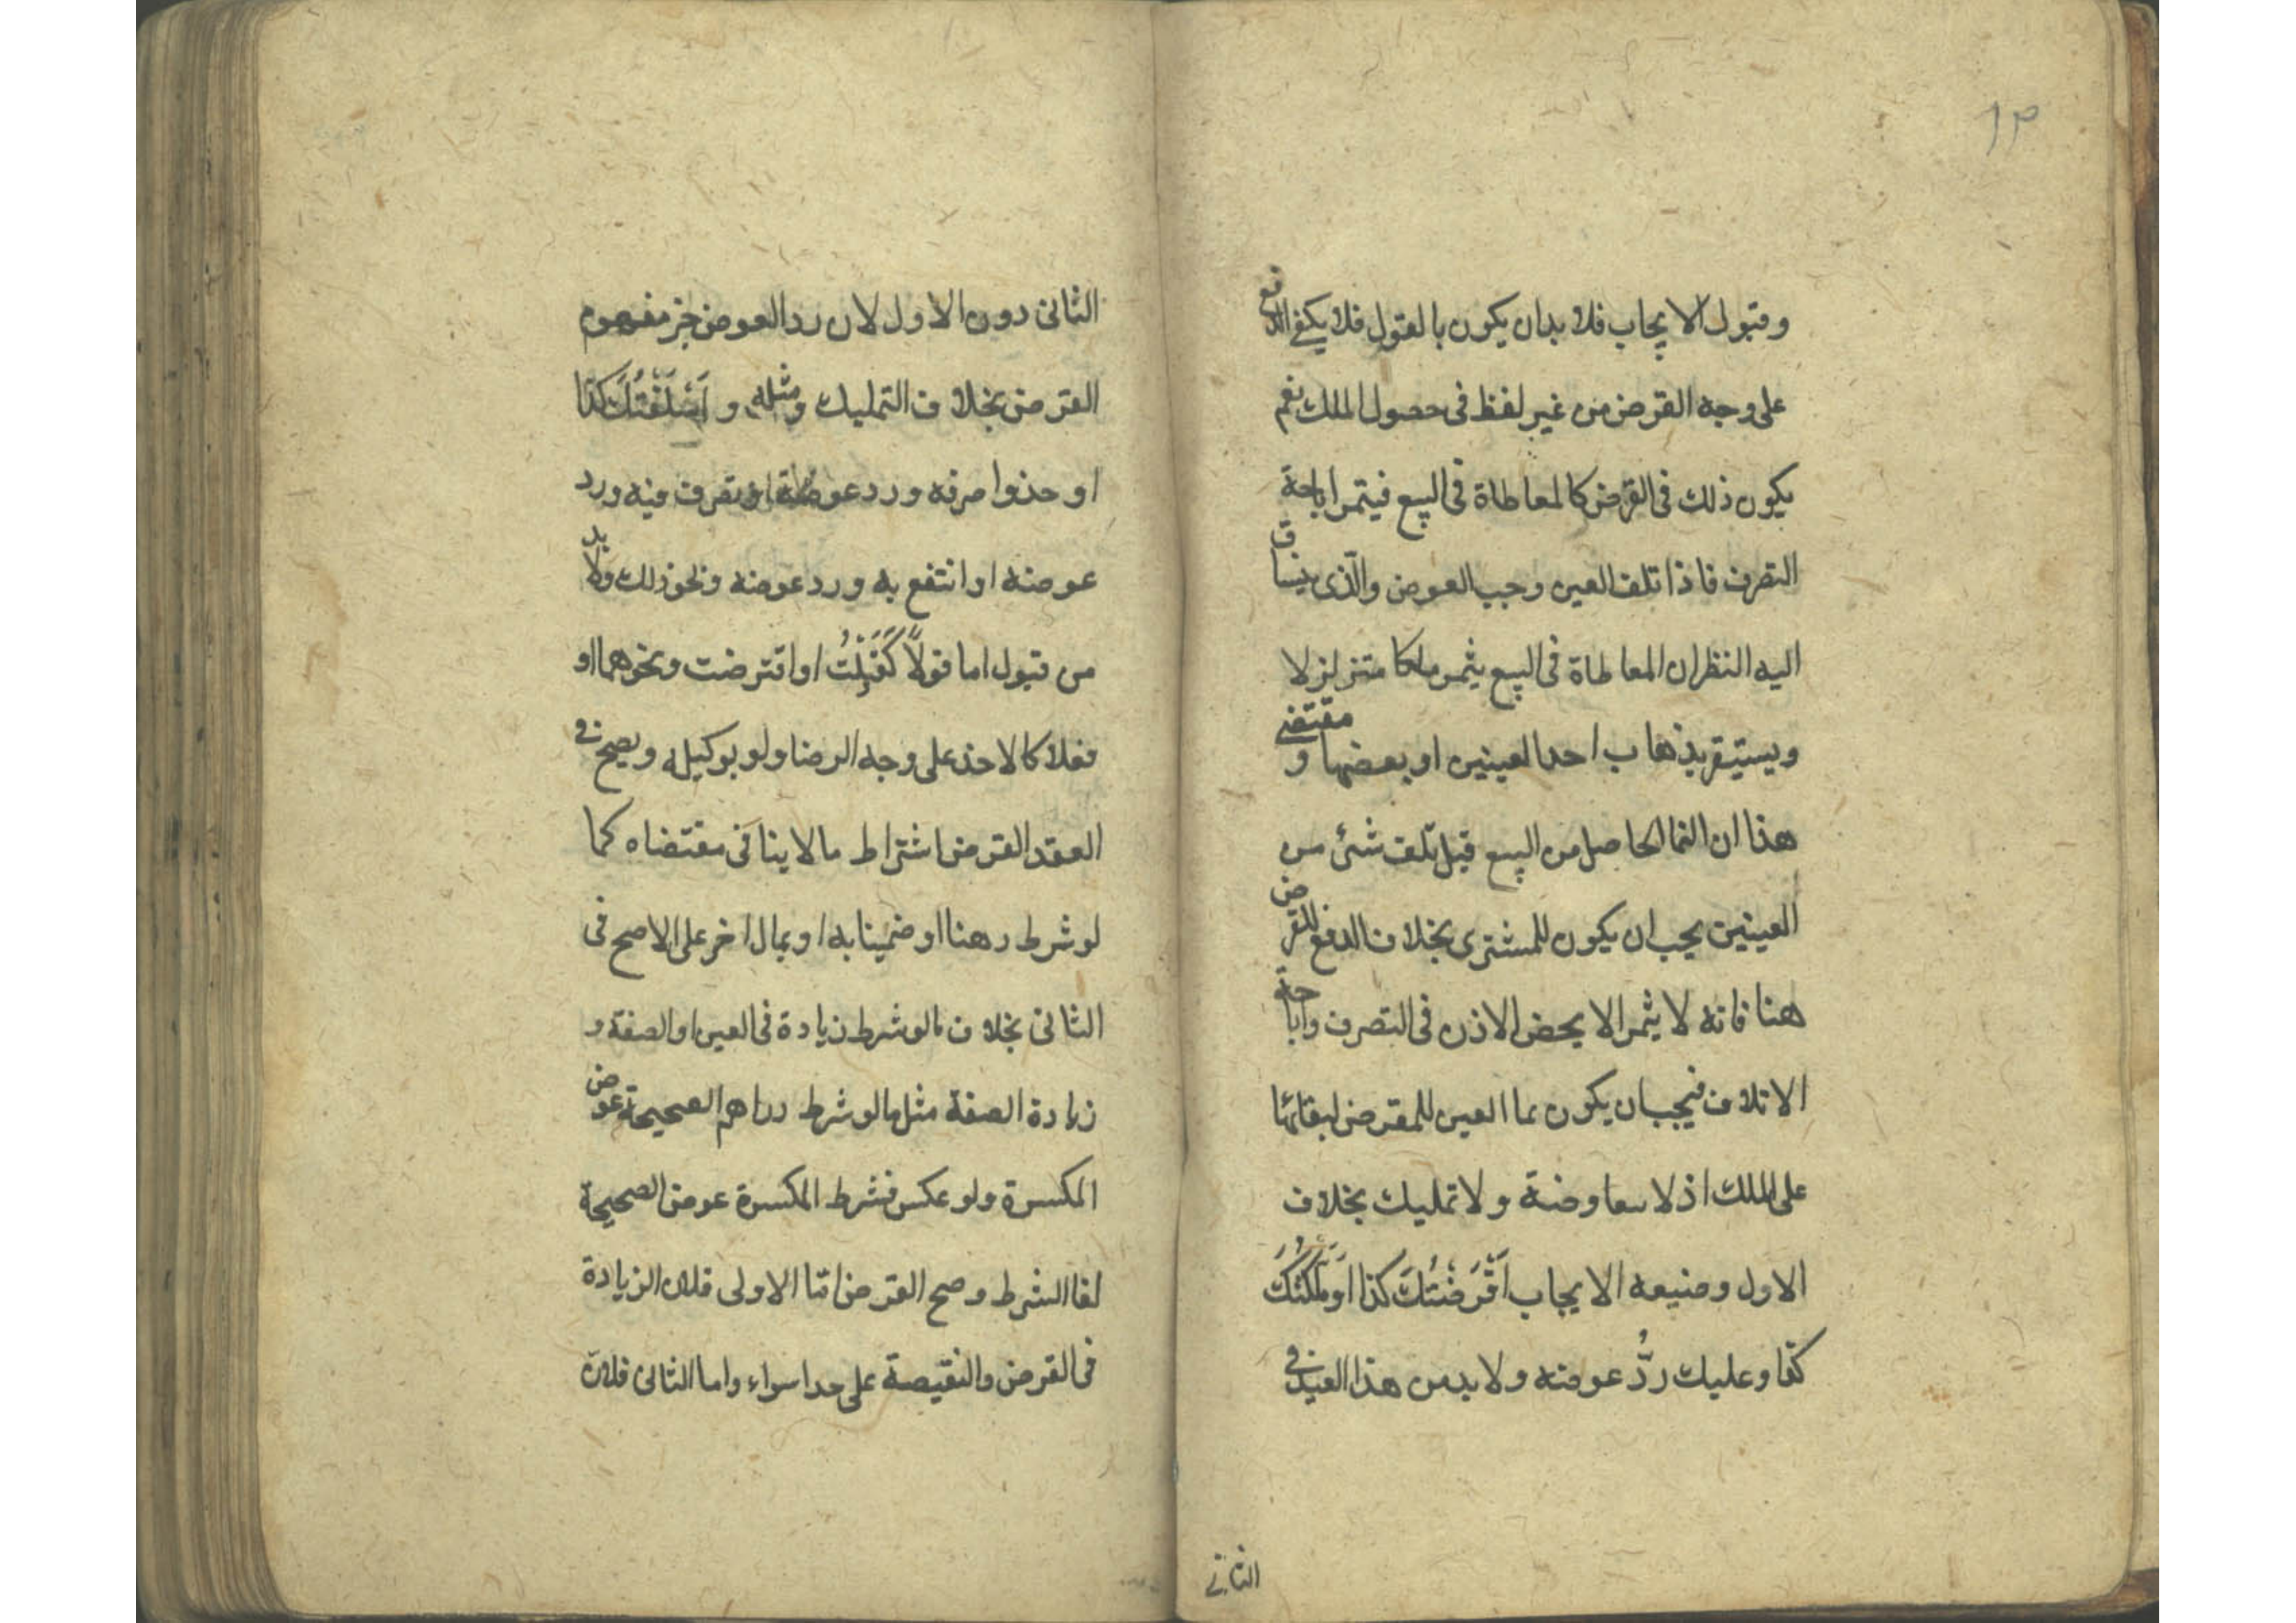 ١٣
وقبول الايجاب فلا بد ان يكون بالقول فلا يكفي الدفع
على وجه القرض من غير لفظ فى حصول الملك نعم
يكون ذلك فى القرض كالمعاطاة فى البيع فيثمر اباحة
التصرف فاذا تلف العين وجب العوض والّذى ينساق
اليه النظر ان المعاطاة فى البيع يثمر ملكا متزلزلا
ويستيقر بذهاب احد العينين او بعضها و مقتضى
هذا ان النما الحاصل من البيع قبل تلف شئ من
العينين يجب ان يكون للمشترى بخلاف الدفع للقرض
هنا فانه لا يثمر الا محض الاذن فى التصرف واباحة
الاتلاف فيجب ان يكون نما العين للمقرض لبقائها
على الملك اذ لا معاوضة ولا تمليك بخلاف
الاول وصيغه الايجاب اَقْرَضْتُكَ كذا اَو مَلَّكْتُكَ
كذا وعليك ردُّ عوضه ولا بد من هذا القيد فى
الثانى
الثانى دون الاول لان رد العوض جز مفهوم
القرض بخلاف التمليك ومثله و اَسْلَفْتُكَ كذا
او خذ واصرفه ورد عوضه او تصرف فيه ورد
عوضه او انتفع به ورد عوضه ونحو ذلك ولا بد
من قبول اما قولاً كَقَبِلْتُ او اقترضت ونحوهما او
فعلا كالاخذ على وجه الرضا ولو بوكيله ويصح فى
العقد القرض اشتراط ما لا ينافى مقتضاه كما
لو شرط رهنا او ضمينا به او بمال اخر على الاصح فى
الثانى بخلاف ما لو شرط زيادة فى العين او الصفة و
زيادة الصفة مثل ما لو شرط دراهم الصحيحة عوض
المكسرة ولو عكس فشرط المكسرة عوض الصحيحة
لغا الشرط وصح القرض امّا الاولى فلان الزيادة
فى القرض والنقيصة على حدا سواء واما الثانى فلان